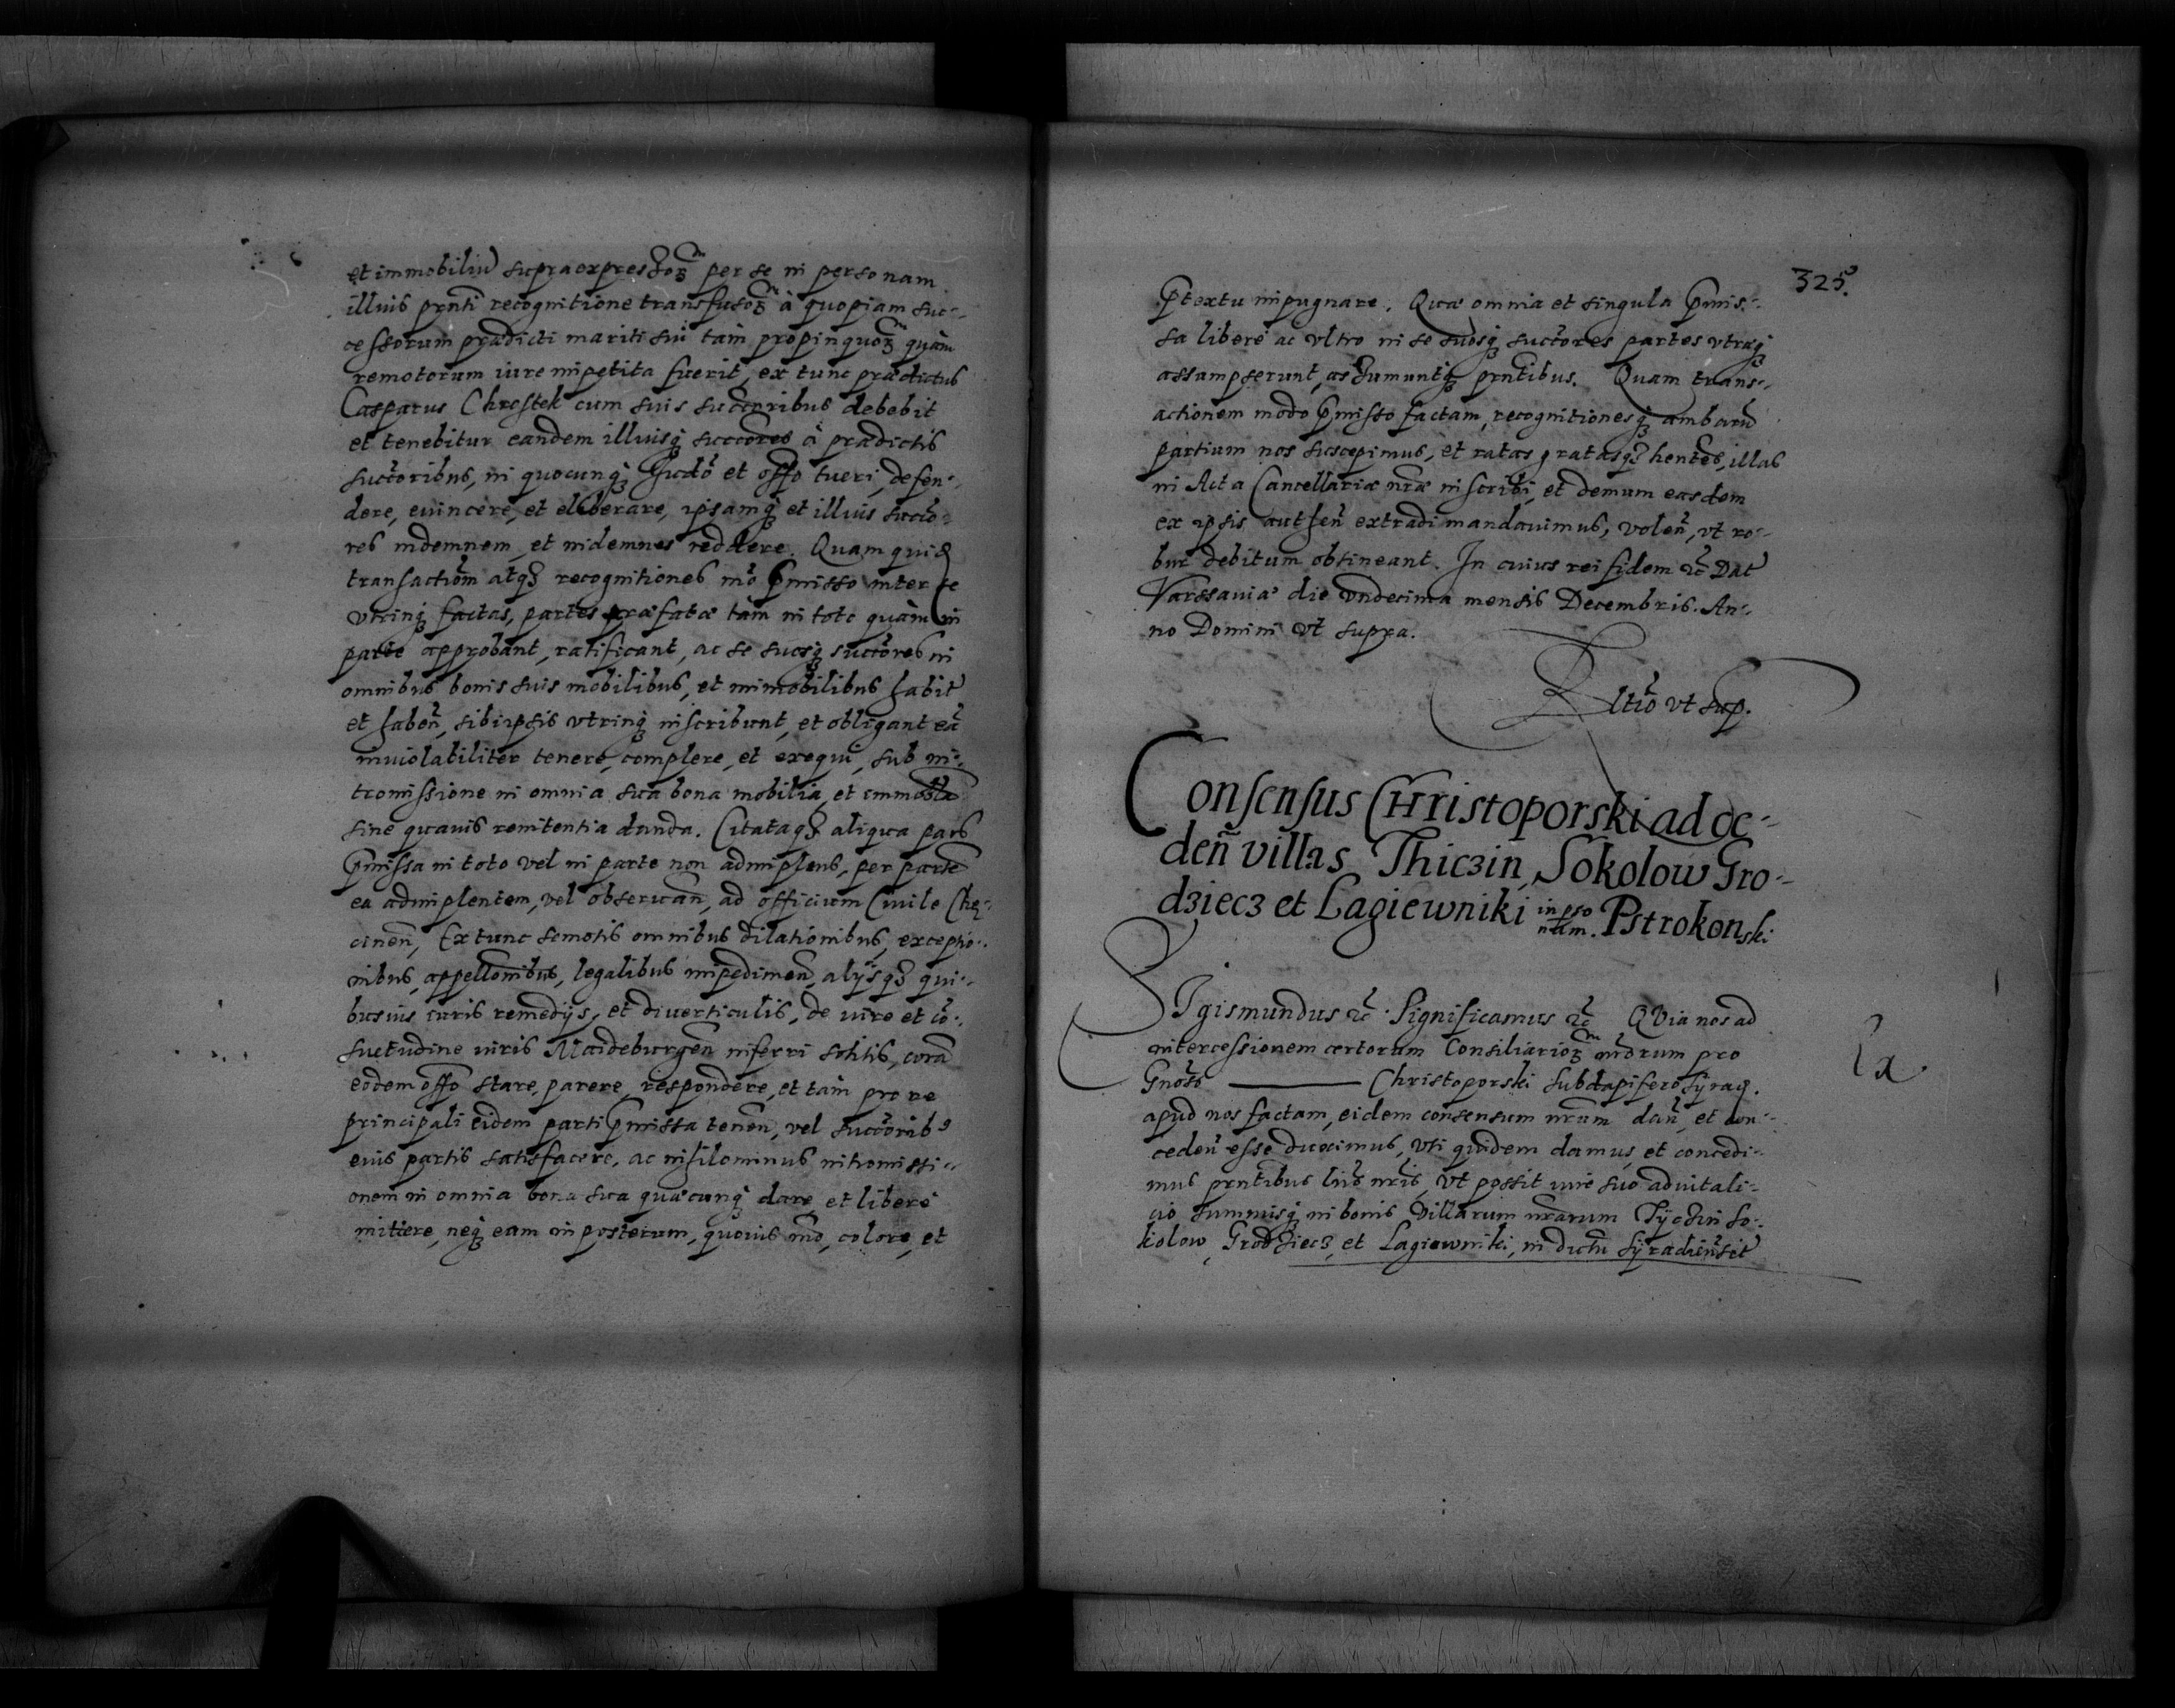 et immobiliũ supraexpressoꝝ per se in personam
illius pñti recognitione transfusoꝝ à quopiam suc-
cessorum prædicti mariti sui tàm propinquoꝝ quàm
remotorum iure impetita fuerit, ex tunc prædictus
Casparus Chrostek cum suis succoribus debebit
et tenebitur eandem illiusq́ꝫ succores à prædictis
succoribus, in quocunqꝫ Iudō et offo tueri, defen-
dere, euincere, et eliberare, ipsamqꝫ et illius succo-
res indemnem et indemnes reddere. Quam quid
transactiōm atqꝫ recognitiones mō p̄misso inter se
vtrinqꝫ factas, partes præfatæ tàm in toto quàm in
parte approbant, ratificant, ac se suosqꝫ succores in
omnibus bonis suis mobilibus, et immobilibus habit
et haben̄, sibi ipsis vtrinqꝫ inscribunt, et obligant ea
inuiolabiliter tenere, complere, et exequi, sub in-
tromissione in omnia sua bona mobilia, et immobla
sine quauis renitentia danda. Citataqꝫ aliqua pars
p̄missa in toto vel in parte non adimplens, per partē
ea adimplentem, vel obseruan̄, ad officium Ciuile Chę-
cinen̄, Ex tunc semotis omnibus dilationibus, exceptio-
nibus, appellōnibus, legalibus impedimen̄, alijsqꝫ qui-
busuis iuris remedijs, et diuerticulis, de iure et cō-
suetudine iuris Maideburgen̄ inferri solitis, corā
eodem offo stare, parere, respondere, et tàm pro re
principali eidem parti p̄missa tenen̄, vel succoribꝰ
eius partis satisfacere, ac nihilominus intromissi-
onem in omnia bona sua quæcunqꝫ dare, et liberè
mittere, neqꝫ eam in posterum, quouis mō, colore, et
325.
p̄textu impugnare. Quæ omnia et singula p̄mis-
sa liberè ac vltro in se suosqꝫ succores partes vtræqꝫ
assumpserunt, assumuntqꝫ pñtibus. Quam trans-
actionem modo p̄misso factam, recognitionesqꝫ ambarū
partium nos suscepimus, et ratas gratasqꝫ hentes, illas
in Acta Cancellariæ nræ inscribi, et demum easdem
ex ipsis authen̄ extradi mandauimus, volen̄, vt ro-
bur debitum obtineant. In cuius rei fidem ꝛc̄ Dat
Varssauiæ die vndecima mensis Decembris. An-
no Domini vt supra.
Rltio vt sup.
Consensus CHristoporski ad ce-
den̄ villas Thicʒin, Sokolow Gro-
dʒiecʒ et Lagiewniki in pso nam. Pstrokonski
SIgismundus ꝛc̄ Significamus ꝛc̄ QVia nos ad
intercessionem certorum Consiliarioꝝ nrorum pro
Gnoso ——— Christoporski Subdapifero Syrad.
apud nos factam, eidem consensum nrum dan̄, et con-
ceden̄ esse duximus, vti quidem damus, et concedi-
mus pñtibus lris nris, vt possit iure suo aduitali-
cio summisqꝫ in bonis Villarum nrarum Tyczin So-
kolow, Grodziecʒ, et Lagiewniki, in dictu Syradien̄ sit